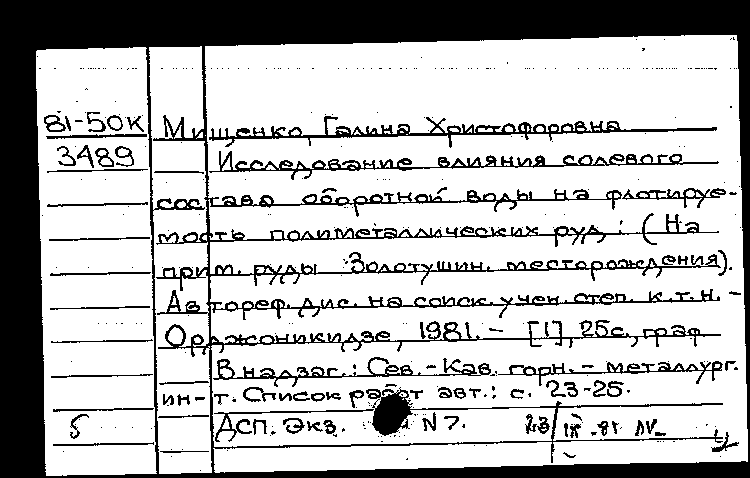 81-50К Мищенко, Галина Христофоровна
3489 Исследование влияния солевого
состава оборотной воды на флотируе-
мость полиметаллических руд : ( На
прим. руды Золотушин. месторождения).
Автореф. дис. на соиск. учен. степ. к.т.н. -
Орджоникидзе, 1981. - [1], 25с., граф
В надзаг.: Сев.-Кав. горн. - металлург.
ин-т. Список работ авт.: с. 23-25.
5 ДСП. Экз. N 7. 23/IX-81